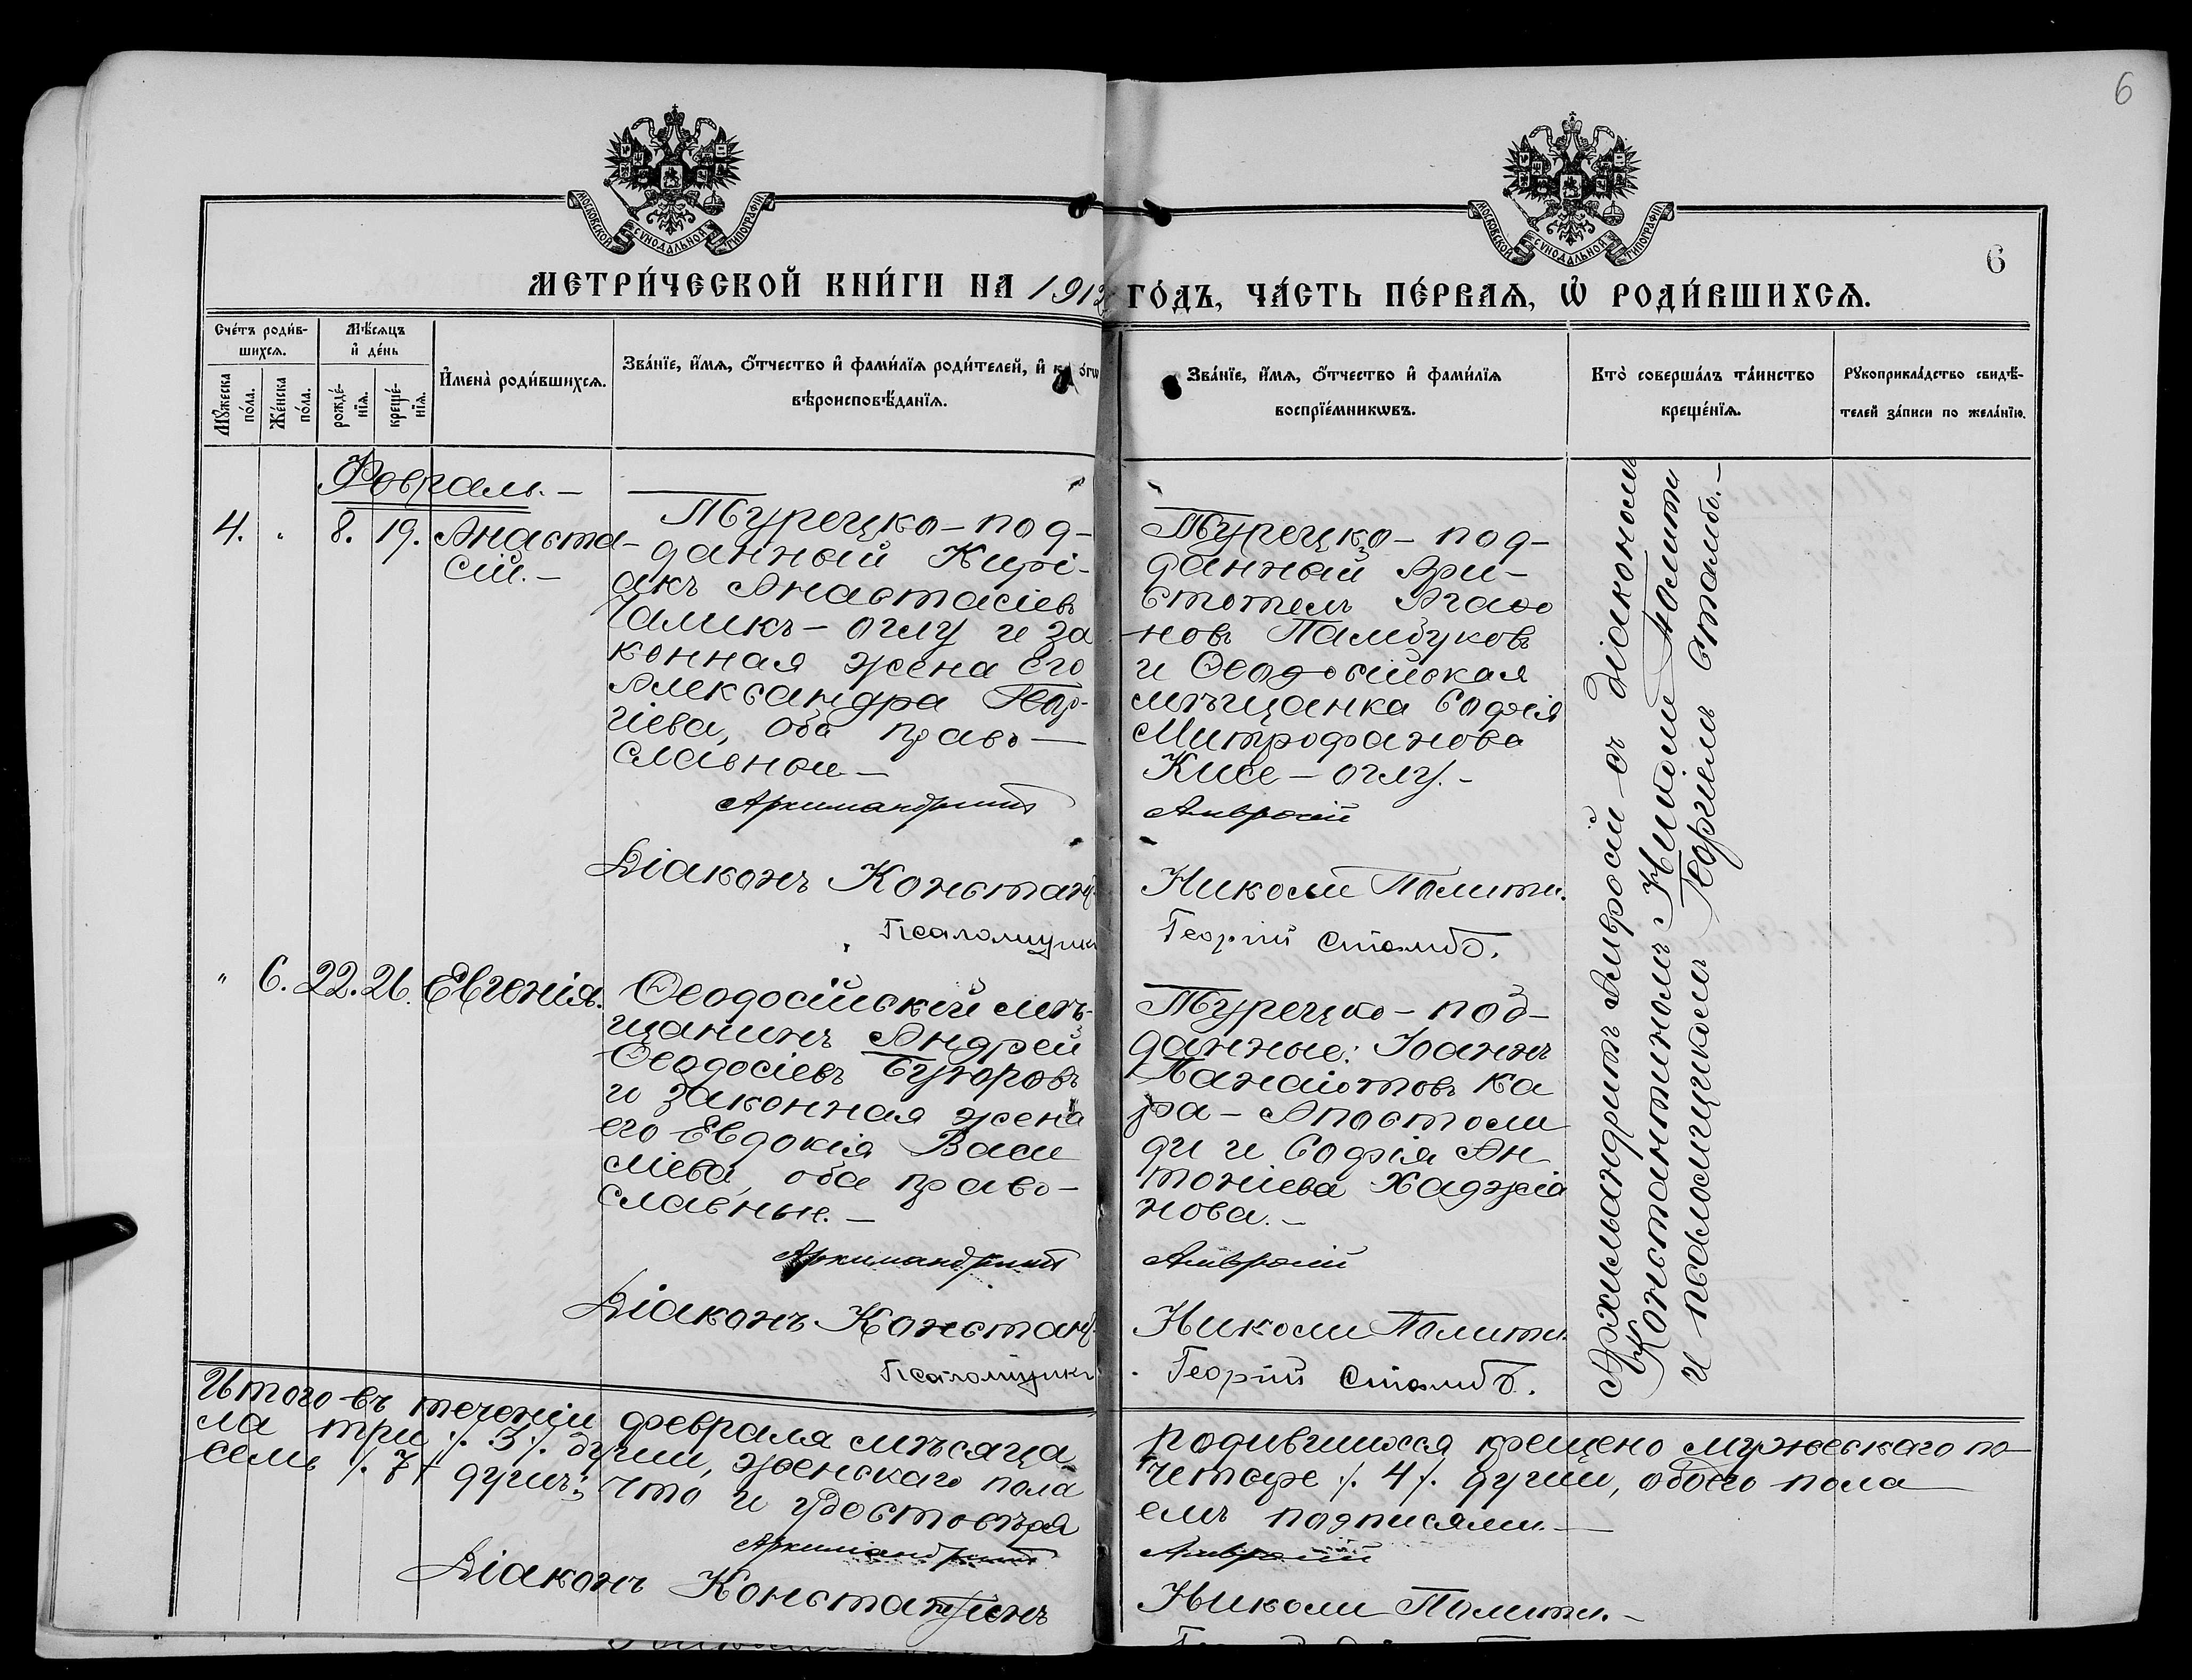 6
МОСКОВСКОЙ СѴНОДАЛЬНОЙ ТИПОГРАФІИ
МОСКОВСКОЙ СѴНОДАЛЬНОЙ ТИПОГРАФІИ
6
МЕТРИ́ЧЕСКОЙ КНИ́ГИ НА 1912 ГО́ДЪ, ЧА́СТЬ ПЕ́РВАѦ, Ѡ҆ РОДИ́ВШИХСѦ.
Сче́тъ роди́в-
шихсѧ.
Мꙋ́жеска
по́ла.
Же́нска
по́ла.
Мѣ́сѧцъ
и҆ де́нь
рожде́-
нїѧ.
креще́-
нїѧ.
И҆мена̀ роди́вшихсѧ.
Зва́нїе, и҆́мѧ, ѻ҆́тчество и҆ фами́лїѧ роди́телей, и҆
вѣроисповѣ́данїѧ.
Зва́нїе, и҆́мѧ, ѻ҆́тчество и҆ фами́лїѧ
воспрїе́мникѡвъ.
Кто̀ соверша́лъ та́инство
креще́нїѧ.
Рꙋкоприкла́дство свидѣ́-
телей за́писи по жела́нїю.
Февраль.—
4. " 8. 19. Анаста-
сій.—
Турецко-под-
данный Кирі-
акъ Анастасіевъ
Чаликъ-оглу и за
конная жена его
Александра Геор-
гіева, оба право—
славные—
Архимандритъ
Діаконъ Констант
Псаломщикъ
Турецко-под-
данный Ари-
стотель Агаѳо
новъ Памбуковъ
и Ѳеодосійская
мѣщанка Софія
Митрофанова
Кисе-оглу.-
Амвросій
Николи Полити.
Георгій Стамбо.
Архимандритъ Амвросій съ діакономъ
Константиномъ Николи Полити
и псаломщикомъ Георгіемъ Стамбо.—
" 6. 22. 26. Евгенія.
Ѳеодосійскій мѣ-
щанинъ Андрей
Ѳеодосіевъ Бугоровъ
и законная жена
его Евдокія Васи
ліева, оба право-
славные.—
Архимандритъ
Діаконъ Констант
Псаломщикъ
Турецко-под-
данные: Іоаннъ
Панаіотовъ Ка
ра-Апостоли
ди и Софія Ан
тоніева Хаджіа
нова.—
Амвросій
Николи Полити.
Георгій Стамбо.
Итого въ теченіи февраля мѣсяца родившихся крещено мужескаго по
ла три ⁒ 3 ⁒ души, женскаго пола четыре ⁒ 4 ⁒ души, обоего пола
семь ⁒ 7 ⁒ душъ; что и удостовѣря емъ подписями.—
Архимандритъ Амвросій
Діаконъ Константинъ Николи Полити.—